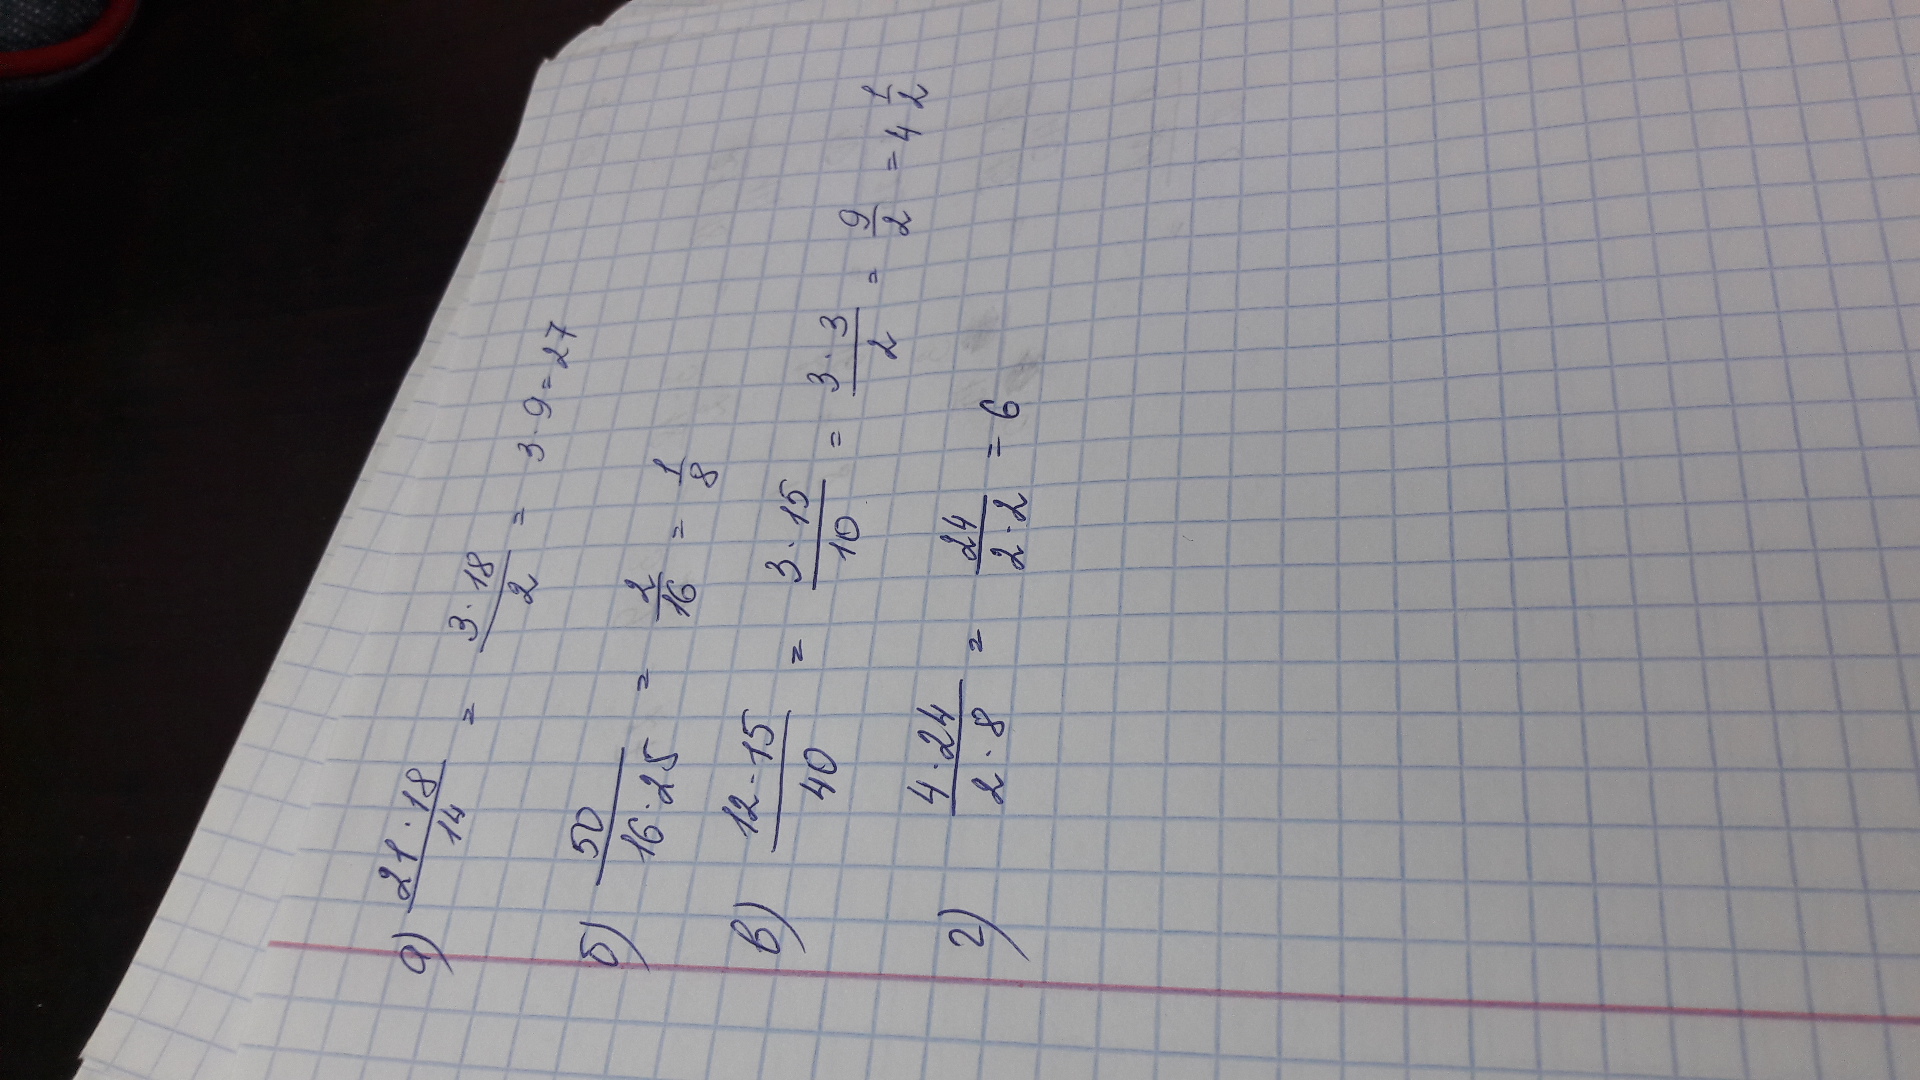 а) 21·18/14 = 3·18/2 = 3·9=27
б) 50/16·25 = 2/16 = 1/8
в) 12·15/40 = 3·15/10 = 3·3/2 = 9/2 = 4 1/2
г) 4·24/2·8 = 24/2·2 = 6